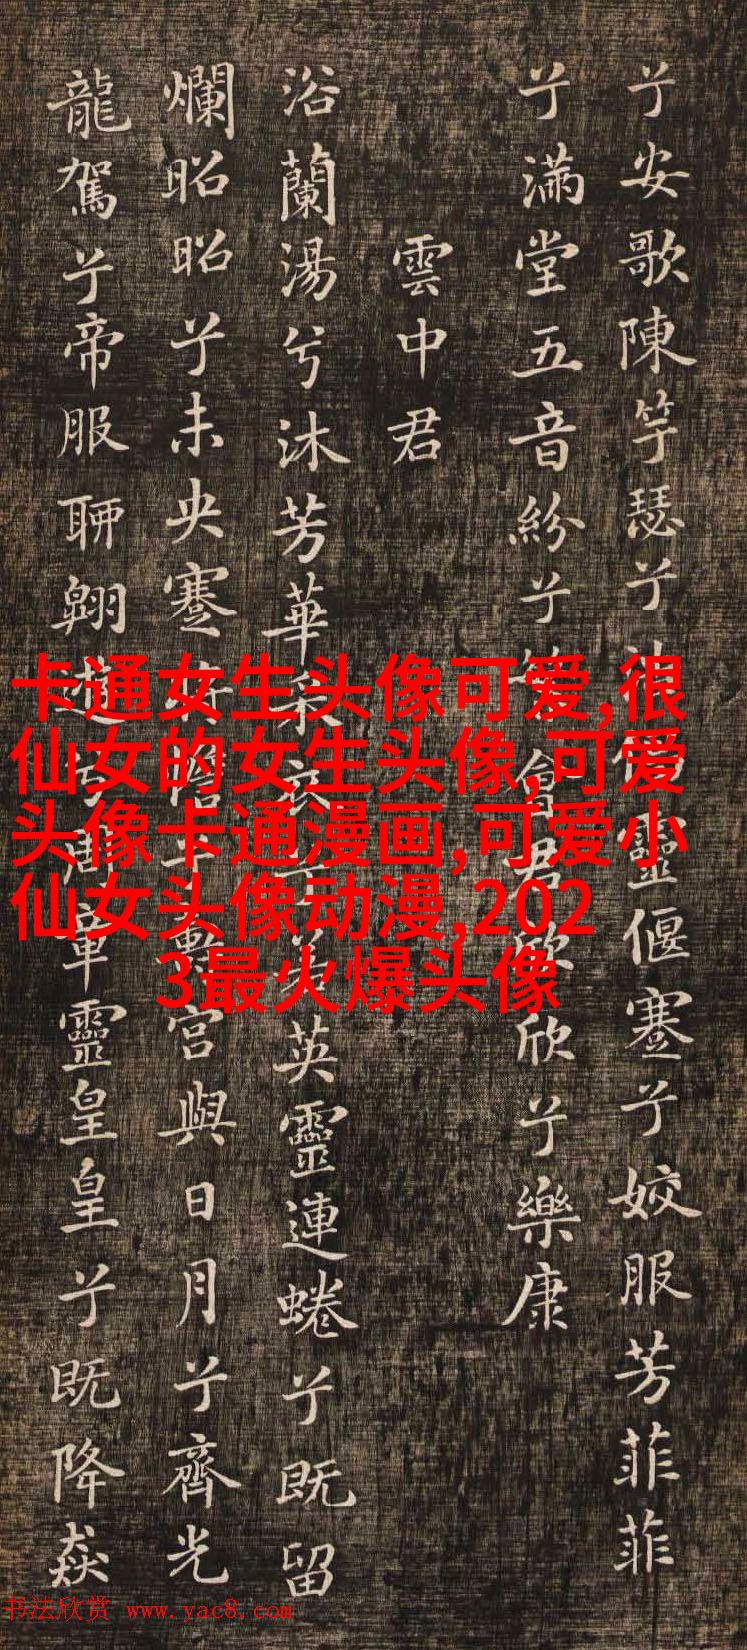 兮安歌陳竽瑟兮靈偃蹇兮姣服芳菲菲
兮滿堂五音紛兮會君欣欣兮樂康
雲中君
浴蘭湯兮沐芳華采衣英靈連蜷兮既留
爛昭昭兮未央蹇將憺宮與日月兮齊光
龍駕兮帝服聊翱遊兮周章靈皇皇兮既降猋
卡通女生头像可爱,很
仙女的女生头像,可爱
头像卡通漫画,可爱小
仙女头像动漫,202
3最火爆头像
书法欣赏 www.yac8.com